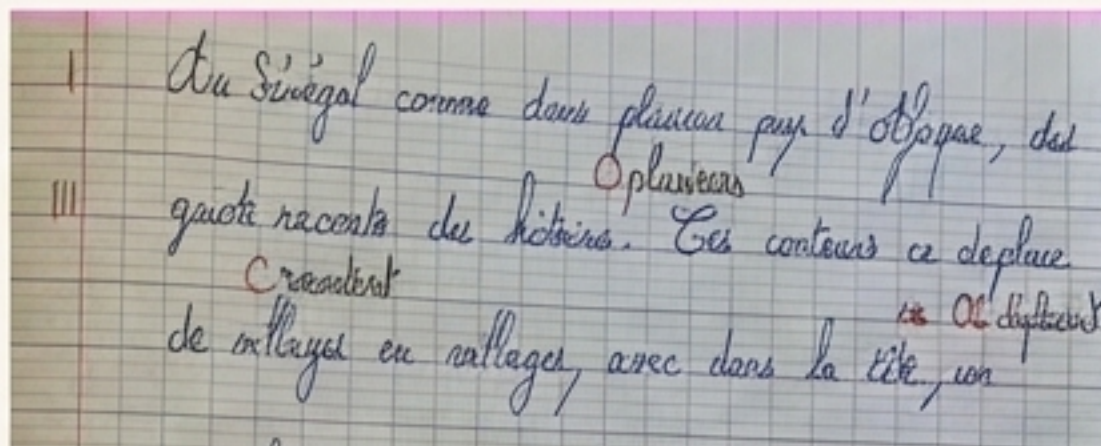 I Au Sénégal comme dans plusieur pays d'Afrique, des
O plusieurs
III griots raconte des histoires. Ces conteurs ce deplace
C racontent
OC déplacent
de villages en villages, avec dans la tête, un